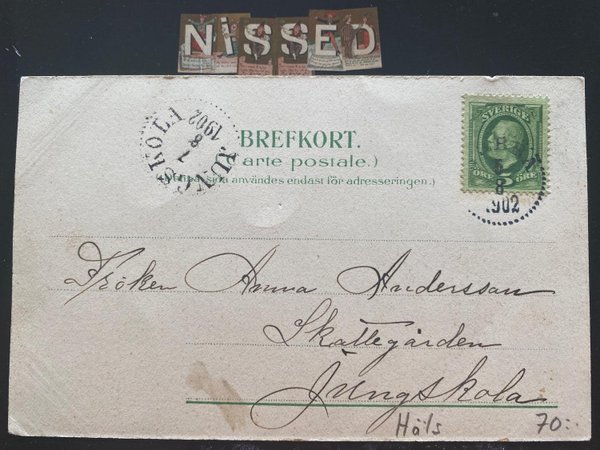 NiSSED
BREFKORT.
(Carte postale.)
sida användes endast för adresseringen.)
LJUNGSKOLA
7
8
1902
SVERIGE
5
ÖRE ÖRE
8
1902
Fröken Anna Andersson
Skattegården
Jungskola
Håls
70:-